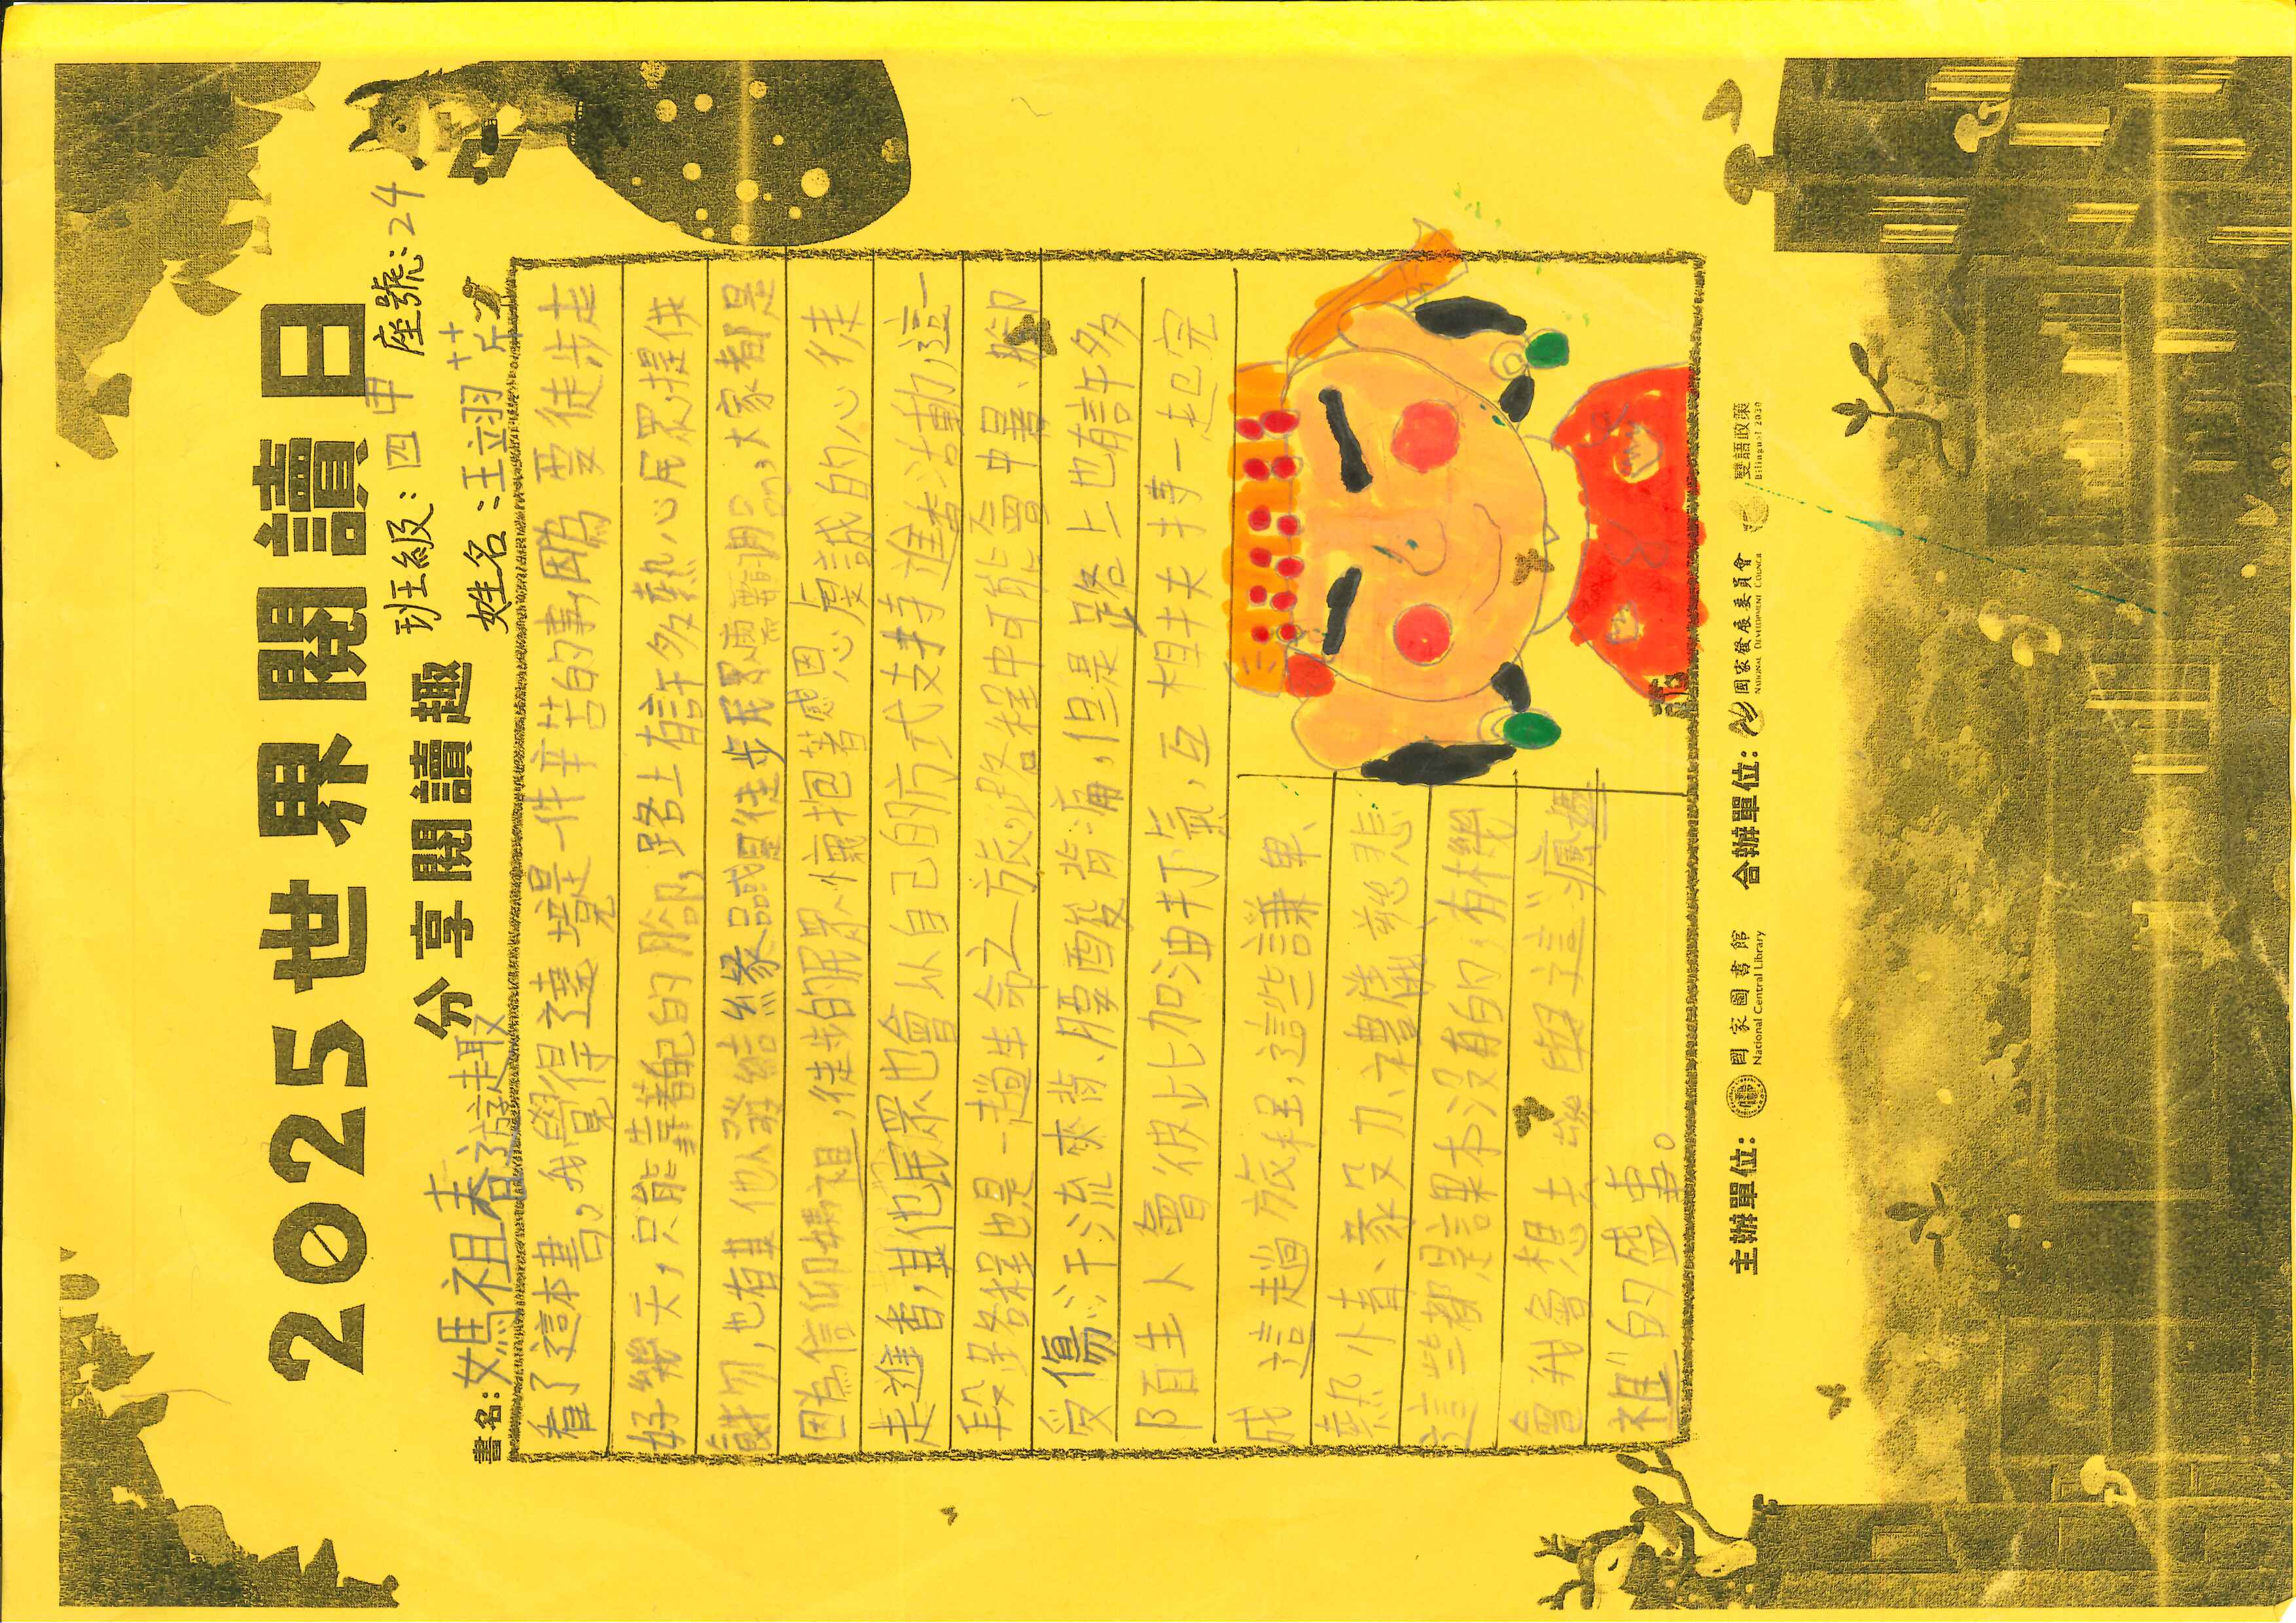 2025世界閱讀日
分享閱讀趣
班級：四甲 座號：24
書名：媽祖春遊趣
姓名：王翊芹
看了這本書，我覺得遶境是一件辛苦的事，因為要徒步走
好幾天，只能靠著自己的腳，路上有許多熱心民眾，提供
食物，也有其他人發結緣品或是徒步民眾需要的用品，大家都是
因為信仰媽祖，徒步的民眾心懷抱著感恩、虔誠的心徒
走進香，其他民眾也會以自己的方式支持進香活動，這一
段路程也是一趟生命之旅，路程中可能會中暑、腳
受傷、汗流夾背、腰酸背痛，但是路上也有許多
陌生人會彼此加油打氣，互相扶持一起完
成這趟旅程，這些謙卑、
熱情、眾投力、禮儀、慈悲
這些都是課本沒有的，有機
會我會想去參與這"瘋媽
祖"的盛事。
主辦單位：國家圖書館 National Central Library 合辦單位：國家發展委員會 NATIONAL DEVELOPMENT COUNCIL 雙語政策 Bilingual 2030